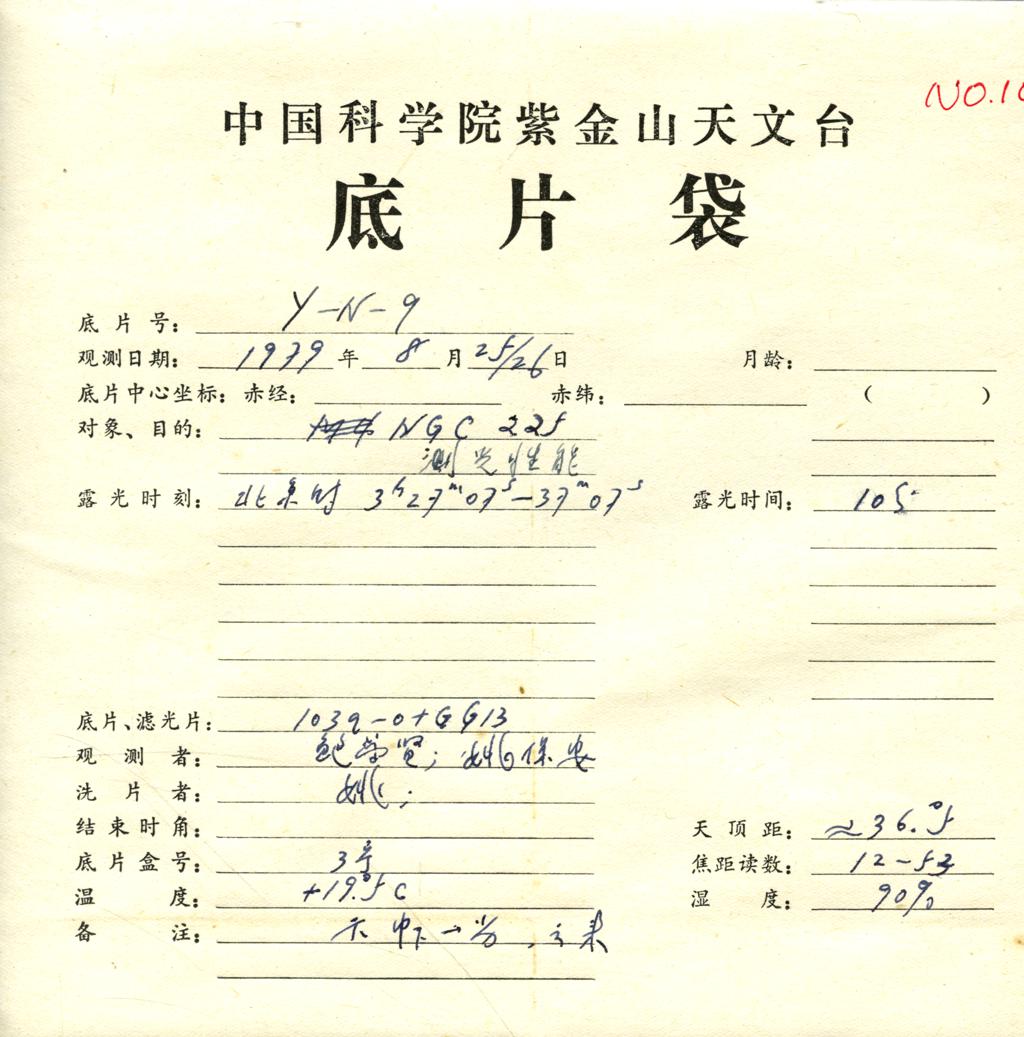 NO.10
中国科学院紫金山天文台
底片袋
底片号: Y-N-9
观测日期: 1979年 8月 25/26日 月龄:
底片中心坐标: 赤经: 赤纬: ( )
对象、目的: NGC 225
测光性能
露光时刻: 北京时 3h27m07s-37m07s 露光时间: 10
底片、滤光片: 103a-O+GG13
观测者: 鲍梦贤; 姚保安
洗片者: 姚;
结束时角: 天顶距: ≈36.°5
底片盒号: 3号 焦距读数: 12-53
温度: +19.°5C 湿度: 90%
备注: